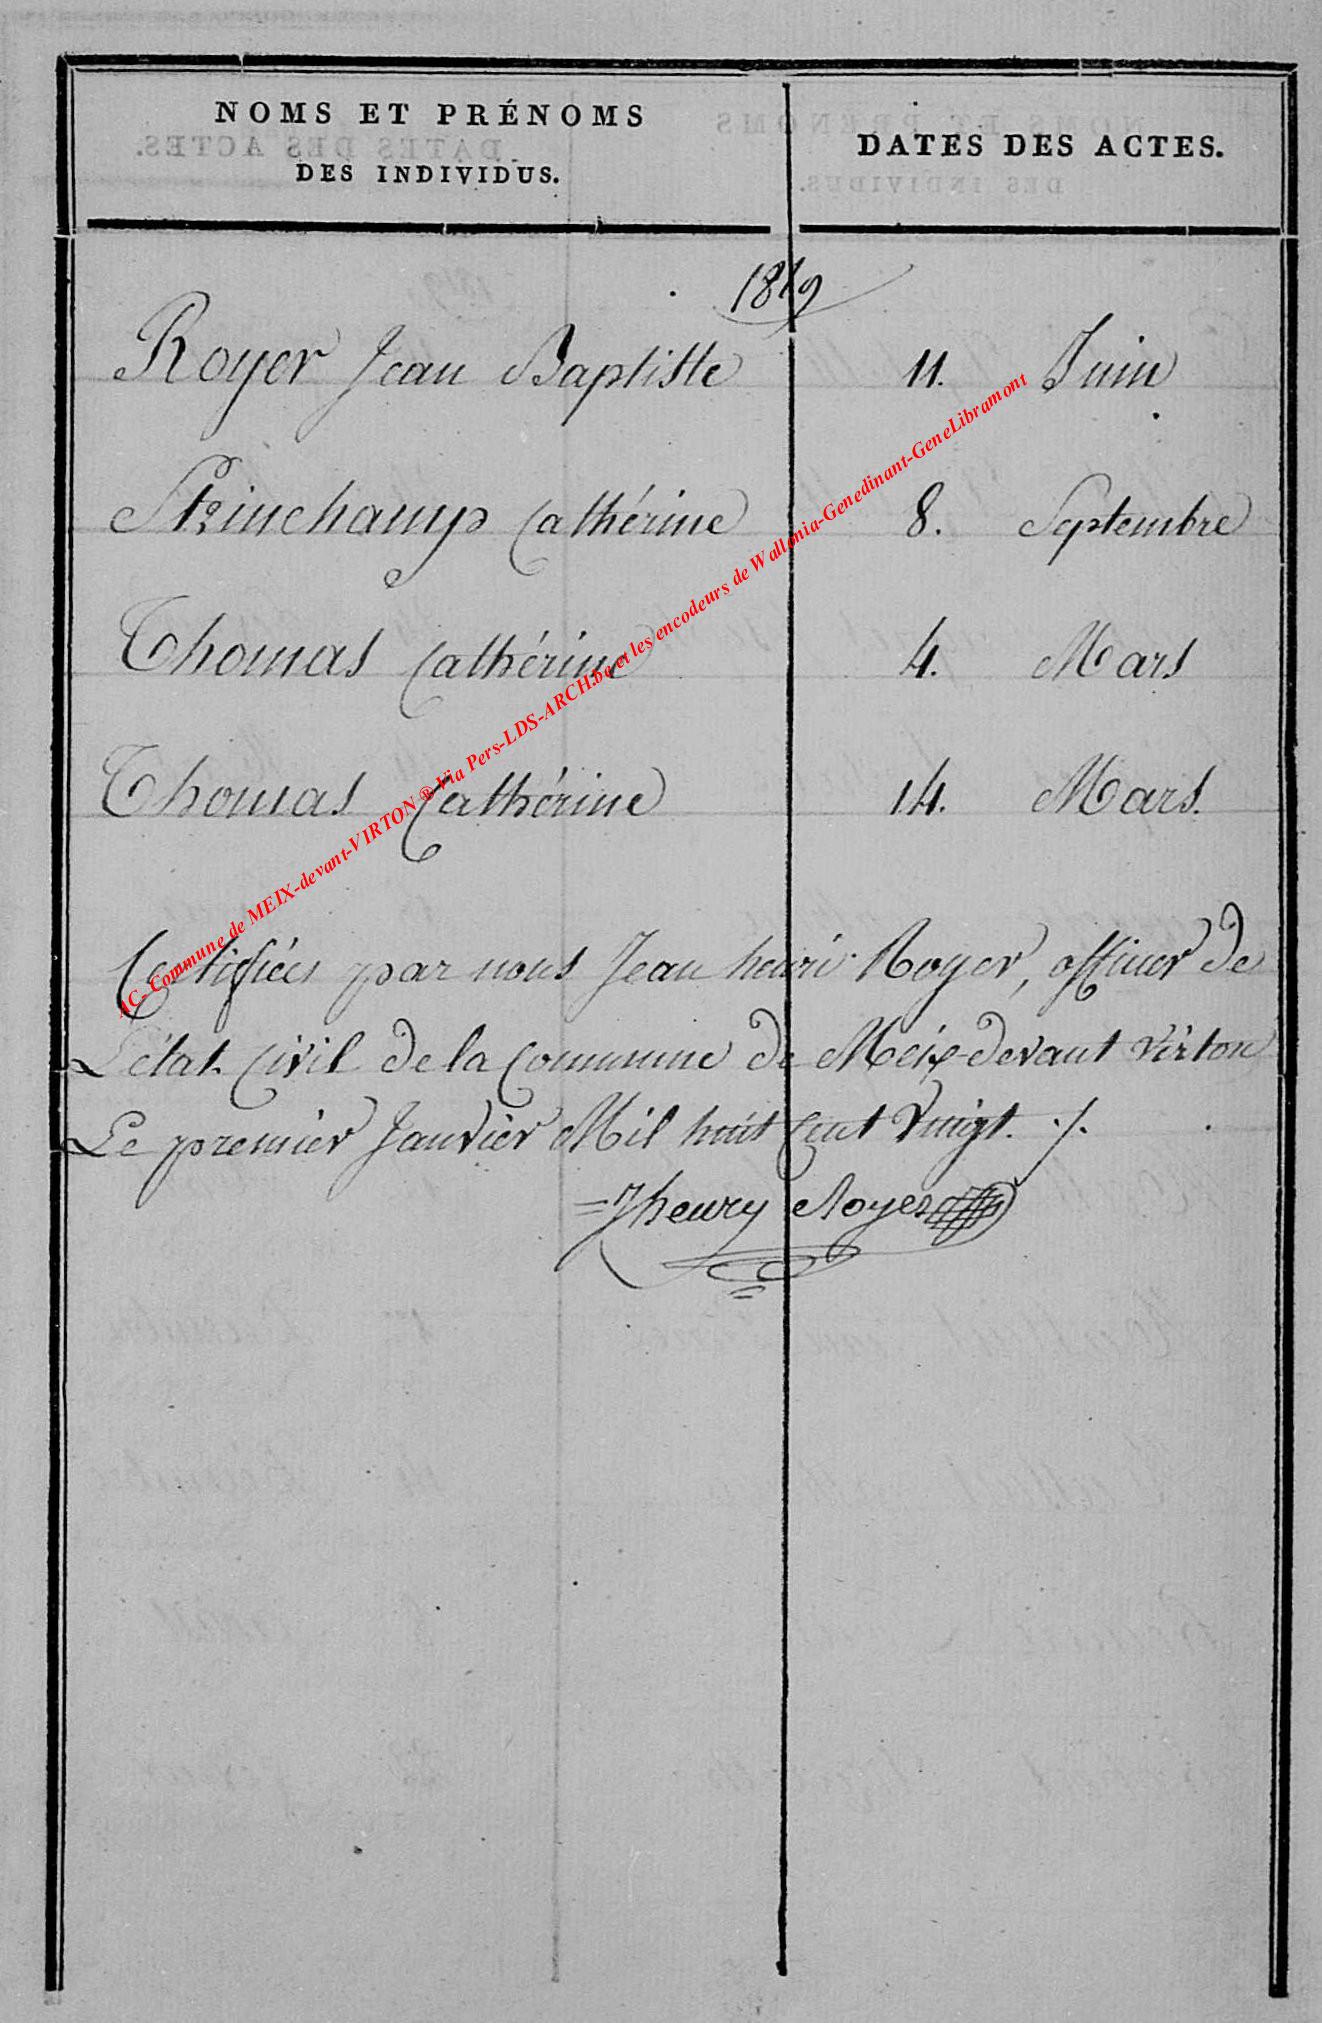 NOMS ET PRÉNOMS
DES INDIVIDUS.
DATES DES ACTES.
1819
Royer Jean Baptiste 11. Juin
Strinchamp Cathérine 8. Septembre
Thomas Cathérine 4. Mars
Thomas Cathérine 14. Mars.
Certifiées par nous Jean henri Royer, officier de
L'état Civil de la Commune de Meix-devant virton
Le premier Janvier Mil huit Cent Vingt. ./.
Jhenry Royer
AC- Commune de MEIX-devant-VIRTON ® Via Pers-LDS-ARCH.be et les encodeurs de Wallonia-Genedinant-GeneLibramont